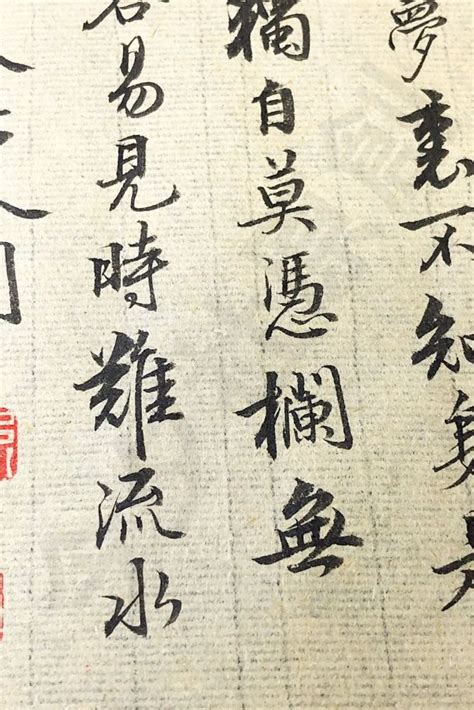 夢裏不知身是
獨自莫憑欄無
容易見時難流水
人間